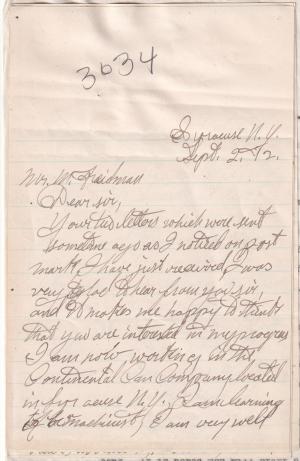 3634
Syracuse N.Y.
Sept. 2, 12.
Mr. W. Fraidman
Dear sir,
Your two letters which were sent
sometime ago as I noticed on post
mark, I have just received. I was
very glad to hear from you sir
and it makes me happy to think
that you are interested in my progress
I am now working in the
Continental Can Company located
in Syracuse N.Y. I am learning
machinist, I am very well